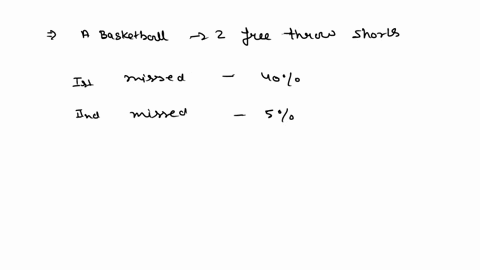 ⇒ A Basketball → 2 free throw shorts
Ist missed - 40%
IInd missed - 5%